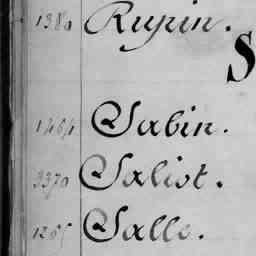 1380 Rupin.
S
1464 Sabin.
3370 Saliot.
1265 Salle.